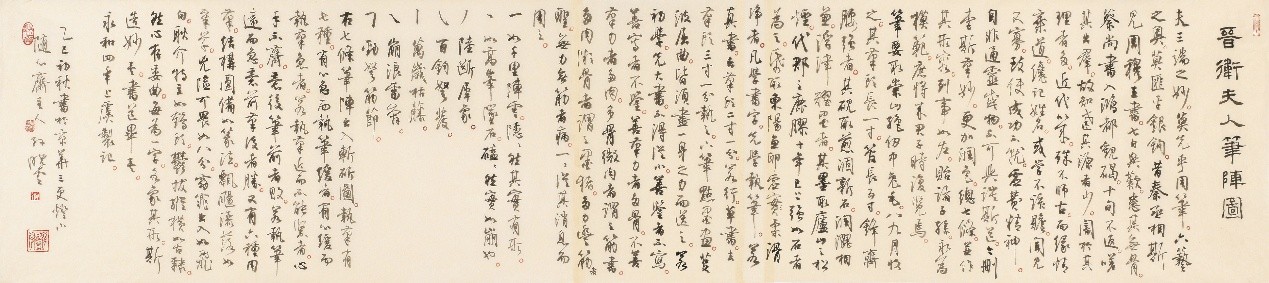 晉衛夫人筆陣圖
夫三端之妙莫先乎用筆六藝
之奧莫匪乎銀鉤昔秦丞相斯
見周穆王書七日興歎患其無骨
蔡尚書入鴻都觀碣十旬不返嗟
其出群故知達其源者少闇於其
理者多近代以來殊不師古而緣情
棄道纔記姓名或學不該贍聞見
又寡致使成功不就虛費精神
自非通靈感物不可與談斯道今刪
李斯筆妙更加潤色總七條並作
其形容列事如左貽諸子孫永為
模範庶將來君子時復覽焉
筆要取崇山絕仞中兔毛八九月收
之其筆頭長一寸管長五寸鋒齊
腰強者其硯取煎涸新石潤澀相
兼浮津耀墨者其墨取廬山之松
煙代郡之鹿膠十年已上強如石者
為之紙取東陽魚卵虛柔滑
淨者凡學書字先學執筆若
真書去筆頭二寸一分若行草書去
筆頭三寸一分執之下筆點墨畫芟
波屈曲皆須盡一身之力而送之若
初學先大書不得從小善鑒者不寫
善寫者不鑒善筆力者多骨不善
筆力者多肉多骨微肉者謂之筋書
多肉微骨者謂之墨豬多力豐筋者
聖無力無筋者病一一從其消息而
用之
一如千里陣雲隱隱然其實有形
丶如高峯墜石磕磕然實如崩也
丿陸斷犀象
百鈞弩發
丨萬歲枯藤
崩浪雷奔
勁弩筋節
右七條筆陣出入斬斫圖執筆有
七種有心急而執筆緩者有心緩而
執筆急者若執筆近而不能緊者心
手不齊意後筆前者敗若執筆
遠而急意前筆後者勝又有六種用
筆結構圓備如篆法飄颺灑落如
章草凶險可畏如八分窈窕出入如飛
白耿介特立如鶴頭鬱拔縱橫如古隸
然心存委曲每為一字各象其形斯
造妙矣書道畢矣
永和四年上虞製記
乙巳初秋書於京華三更燈下
隨心齋主人